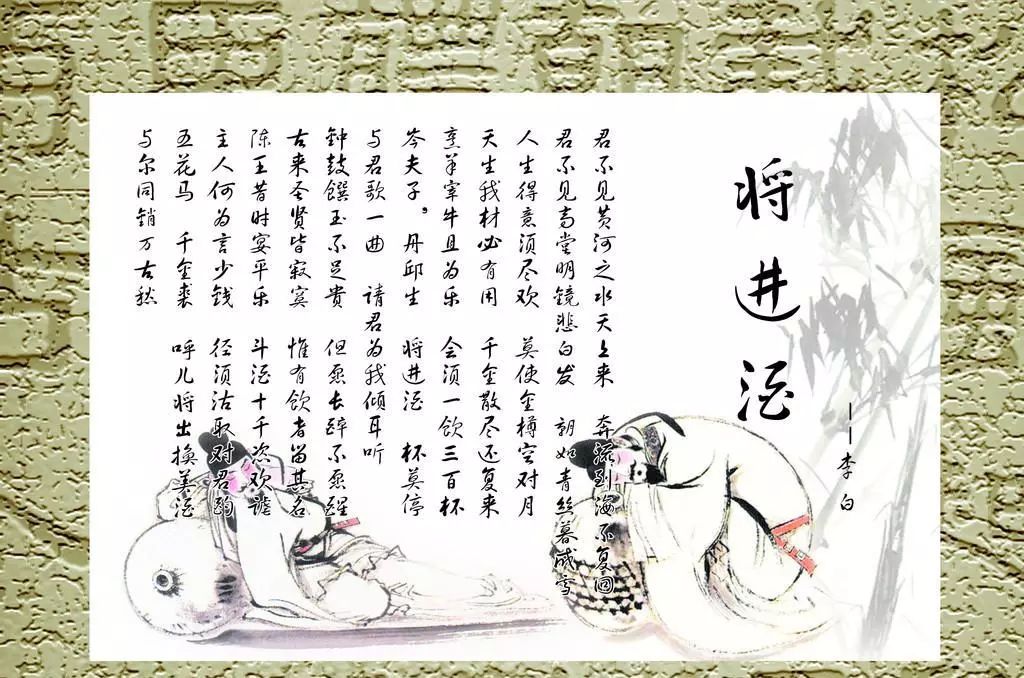 将进酒
——李白
君不见黄河之水天上来 奔流到海不复回
君不见高堂明镜悲白发 朝如青丝暮成雪
人生得意须尽欢 莫使金樽空对月
天生我材必有用 千金散尽还复来
烹羊宰牛且为乐 会须一饮三百杯
岑夫子，丹邱生 将进酒 杯莫停
与君歌一曲 请君为我倾耳听
钟鼓馔玉不足贵 但愿长醉不愿醒
古来圣贤皆寂寞 惟有饮者留其名
陈王昔时宴平乐 斗酒十千恣欢谑
主人何为言少钱 径须沽取对君酌
五花马 千金裘 呼儿将出换美酒
与尔同销万古愁